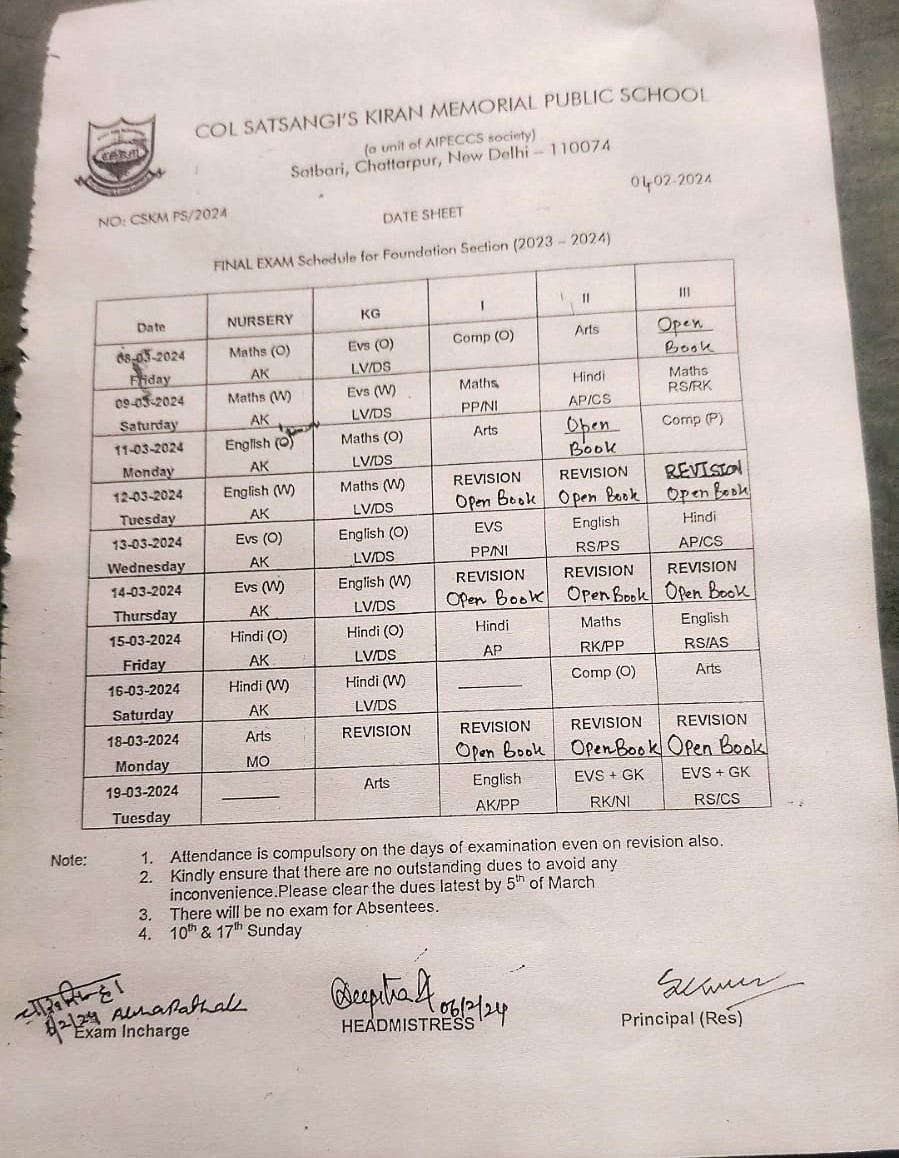 COL SATSANGI'S KIRAN MEMORIAL PUBLIC SCHOOL
(a unit of AIPECCS society)
Satbari, Chattarpur, New Delhi – 110074
CSKM
04-02-2024
NO: CSKM PS/2024
DATE SHEET
FINAL EXAM Schedule for Foundation Section (2023 – 2024)
Date NURSERY KG I II III
08-03-2024 Friday Maths (O) AK Evs (O) LV/DS Comp (O) Arts Open Book
09-03-2024 Saturday Maths (W) AK Evs (W) LV/DS Maths PP/NI Hindi AP/CS Maths RS/RK
11-03-2024 Monday English (O) AK Maths (O) LV/DS Arts Open Book Comp (P)
12-03-2024 Tuesday English (W) AK Maths (W) LV/DS REVISION Open Book REVISION Open Book REVISION Open Book
13-03-2024 Wednesday Evs (O) AK English (O) LV/DS EVS PP/NI English RS/PS Hindi AP/CS
14-03-2024 Thursday Evs (W) AK English (W) LV/DS REVISION Open Book REVISION Open Book REVISION Open Book
15-03-2024 Friday Hindi (O) AK Hindi (O) LV/DS Hindi AP Maths RK/PP English RS/AS
16-03-2024 Saturday Hindi (W) AK Hindi (W) LV/DS Comp (O) Arts
18-03-2024 Monday Arts MO REVISION REVISION Open Book REVISION Open Book REVISION Open Book
19-03-2024 Tuesday Arts English AK/PP EVS + GK RK/NI EVS + GK RS/CS
Note:
1. Attendance is compulsory on the days of examination even on revision also.
2. Kindly ensure that there are no outstanding dues to avoid any
inconvenience.Please clear the dues latest by 5th of March
3. There will be no exam for Absentees.
4. 10th & 17th Sunday
06/2/24
Exam Incharge
HEADMISTRESS
Principal (Res)